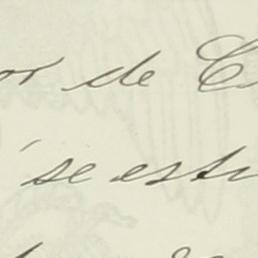 or de C
se estu